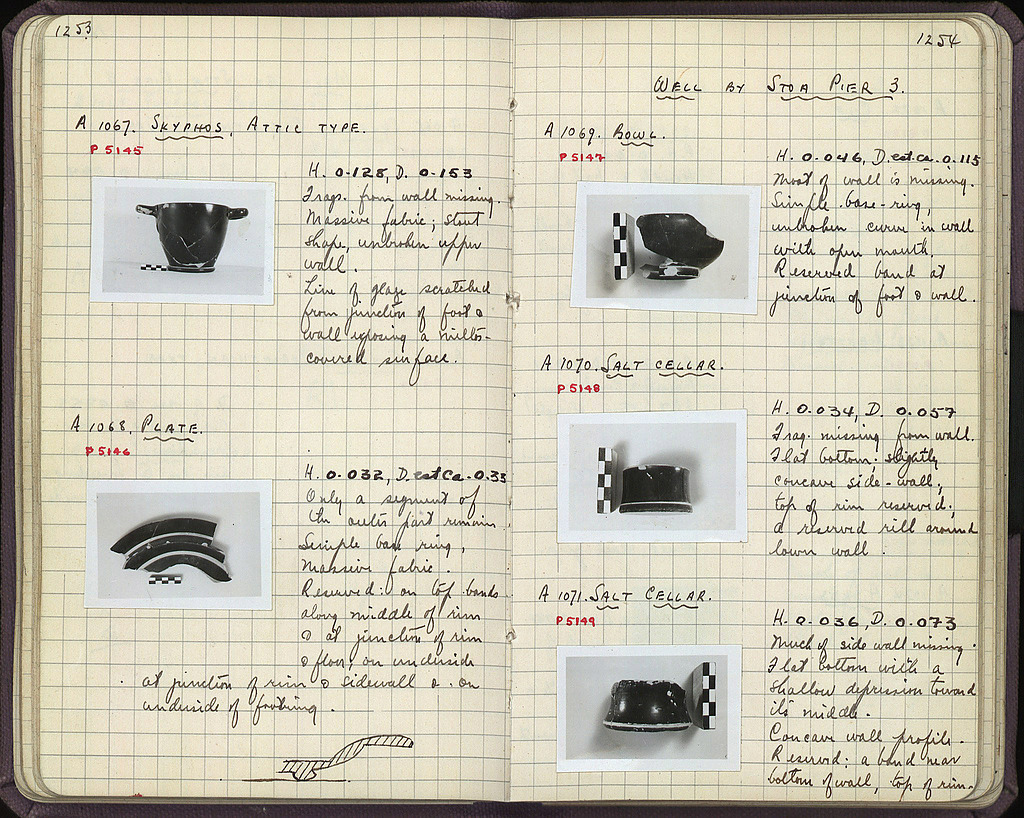 1253
A 1067. SKYPHOS, ATTIC TYPE.
P 5145
H. 0.128, D. 0.153
Frags. from wall missing.
Massive fabric; stout
shape, unbroken upper
wall.
Line of glaze scratched
from junction of foot &
wall exposing a miltos-
covered surface.
A 1068. PLATE.
P 5146
H. 0.032, D. est. ca. 0.33
Only a segment of
the outer part remains
Simple base ring,
massive fabric.
Reserved: on top bands
along middle of rim
& at junction of rim
& floor; on underside
at junction of rim & sidewall & on
underside of footring.
1254
WELL BY STOA PIER 3.
A 1069. BOWL.
P 5147
H. 0.046, D. est. ca. 0.115
Most of wall is missing.
Simple base-ring,
unbroken curve in wall
with open mouth.
Reserved band at
junction of foot & wall.
A 1070. SALT CELLAR.
P 5148
H. 0.034, D. 0.057
Frag. missing from wall.
Flat bottom; slightly
concave side-wall;
top of rim reserved;
a reserved rill around
lower wall.
A 1071. SALT CELLAR.
P 5149
H. 0.036, D. 0.073
Much of side wall missing.
Flat bottom with a
shallow depression toward
its middle.
Concave wall profile.
Reserved: a band near
bottom of wall, top of rim.